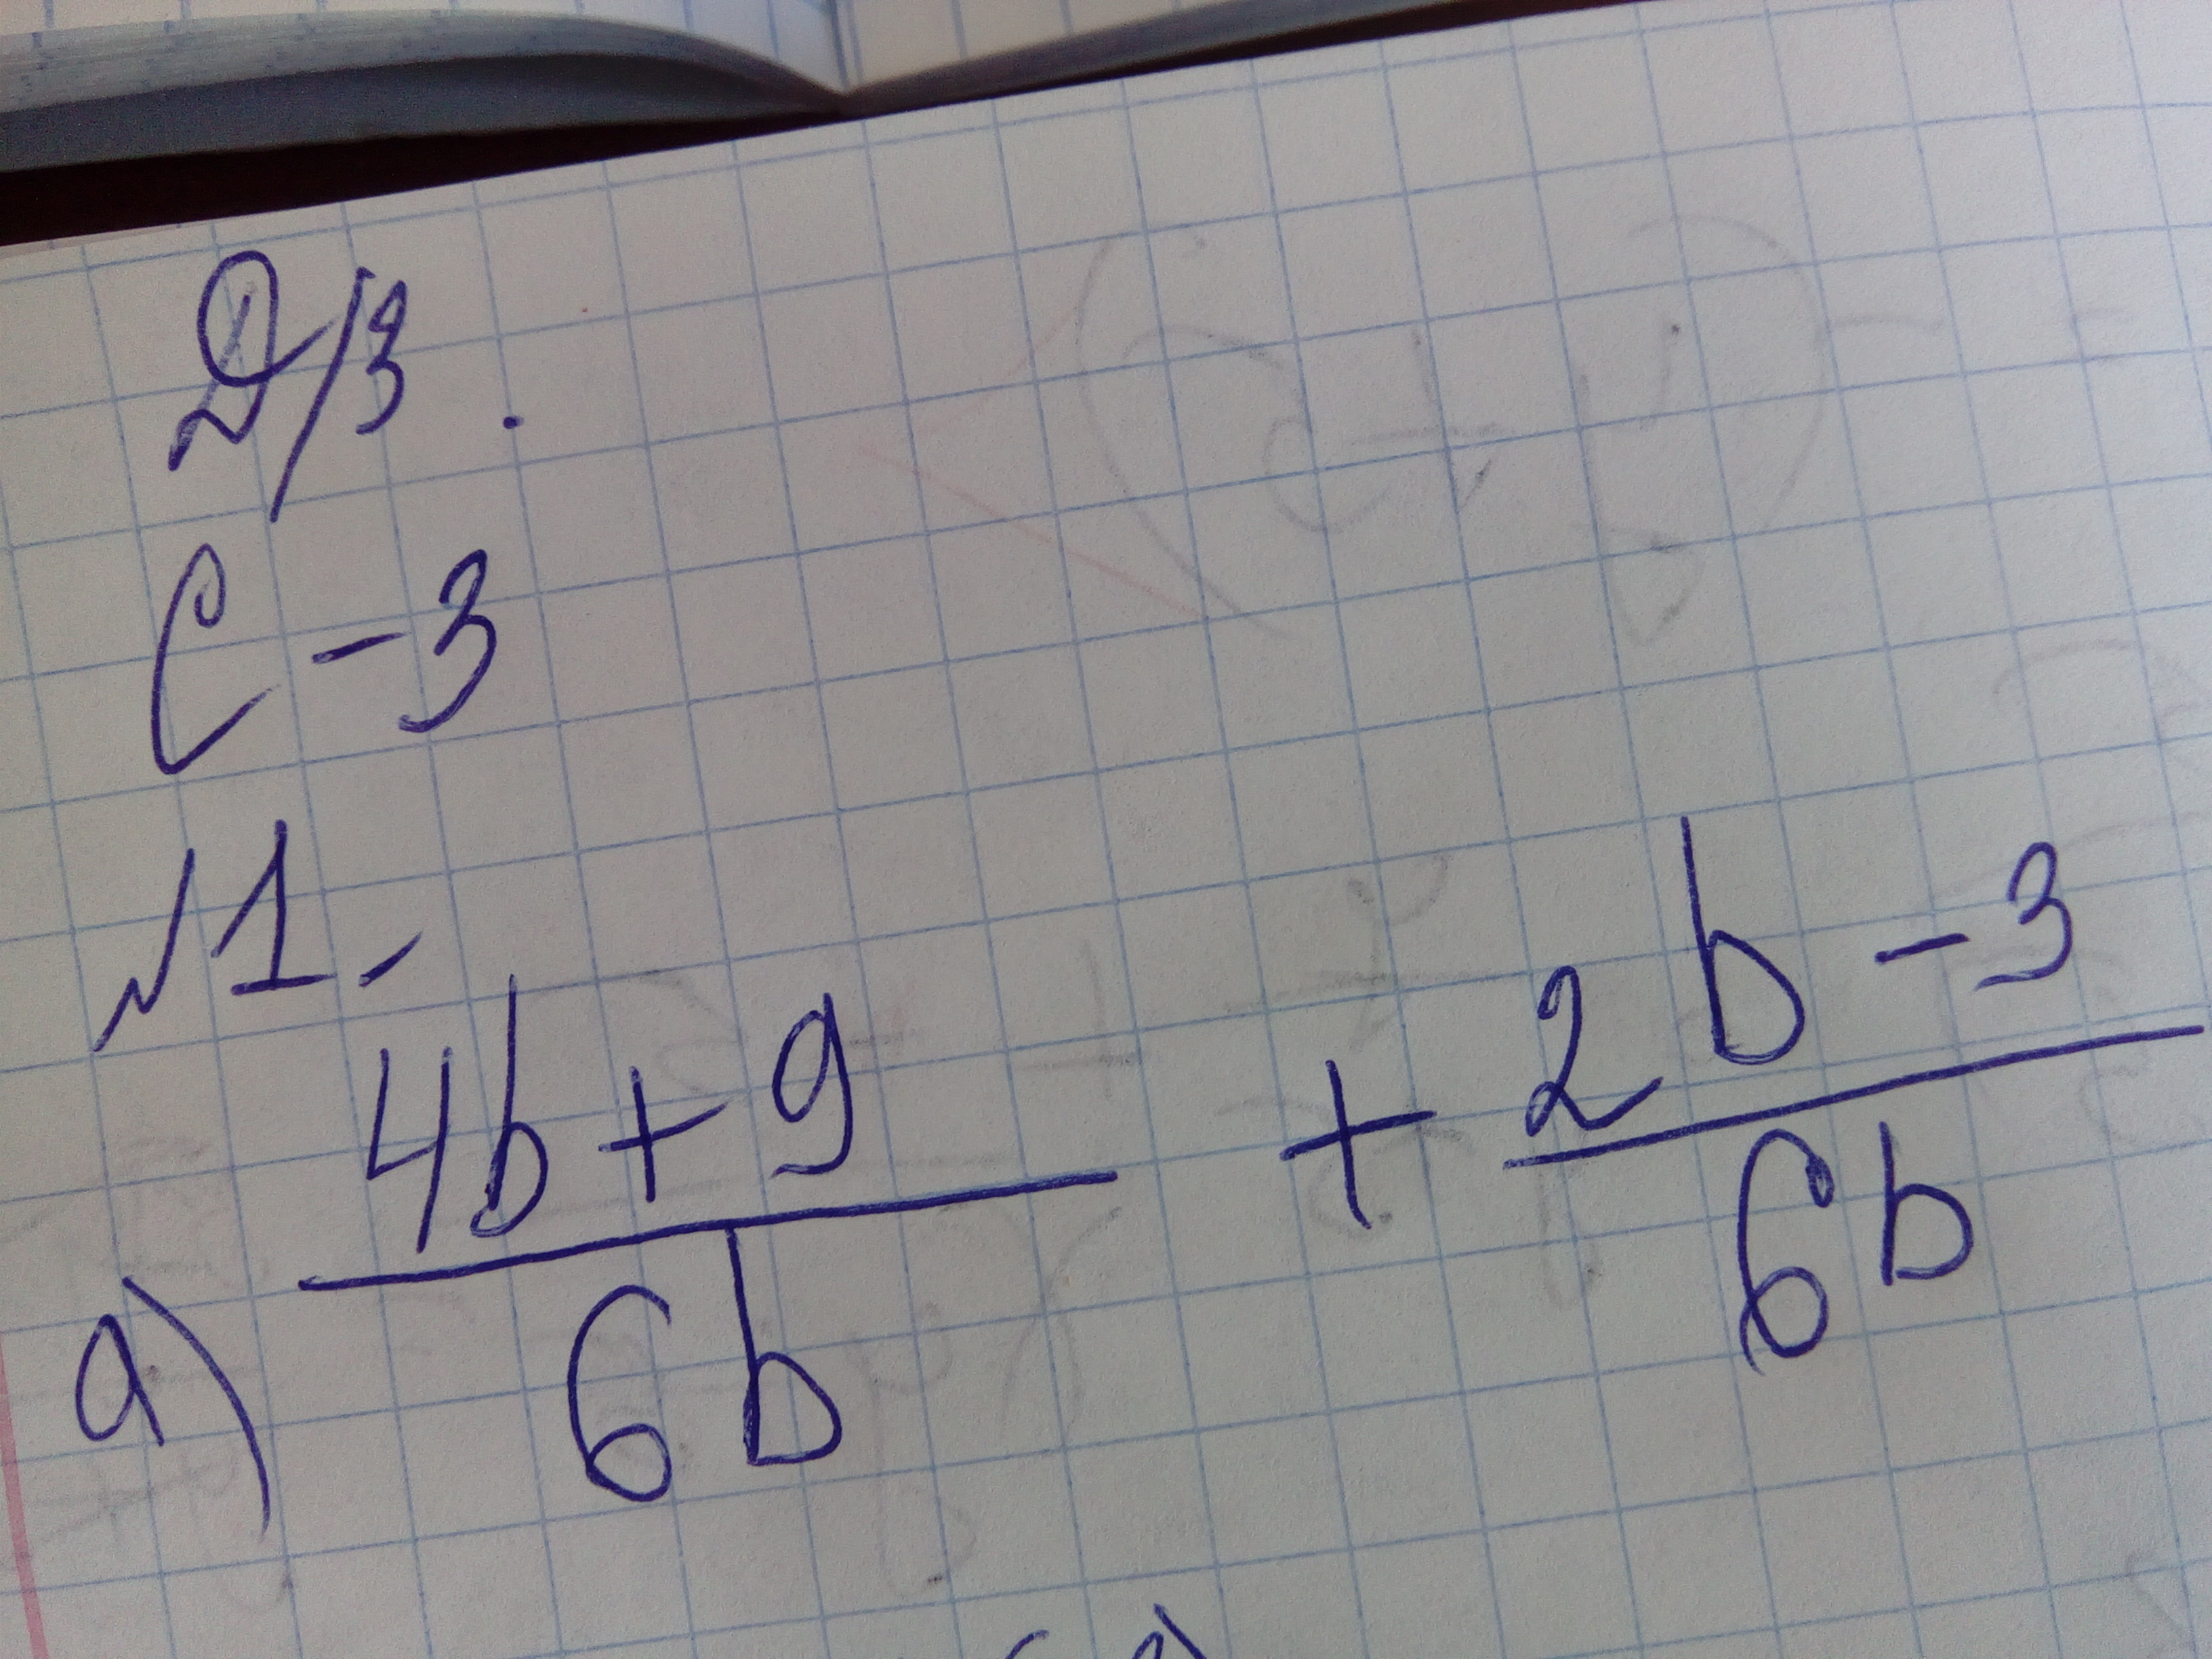 Д/з.
С-3
№1.
а) (4b+9)/(6b) + (2b-3)/(6b)